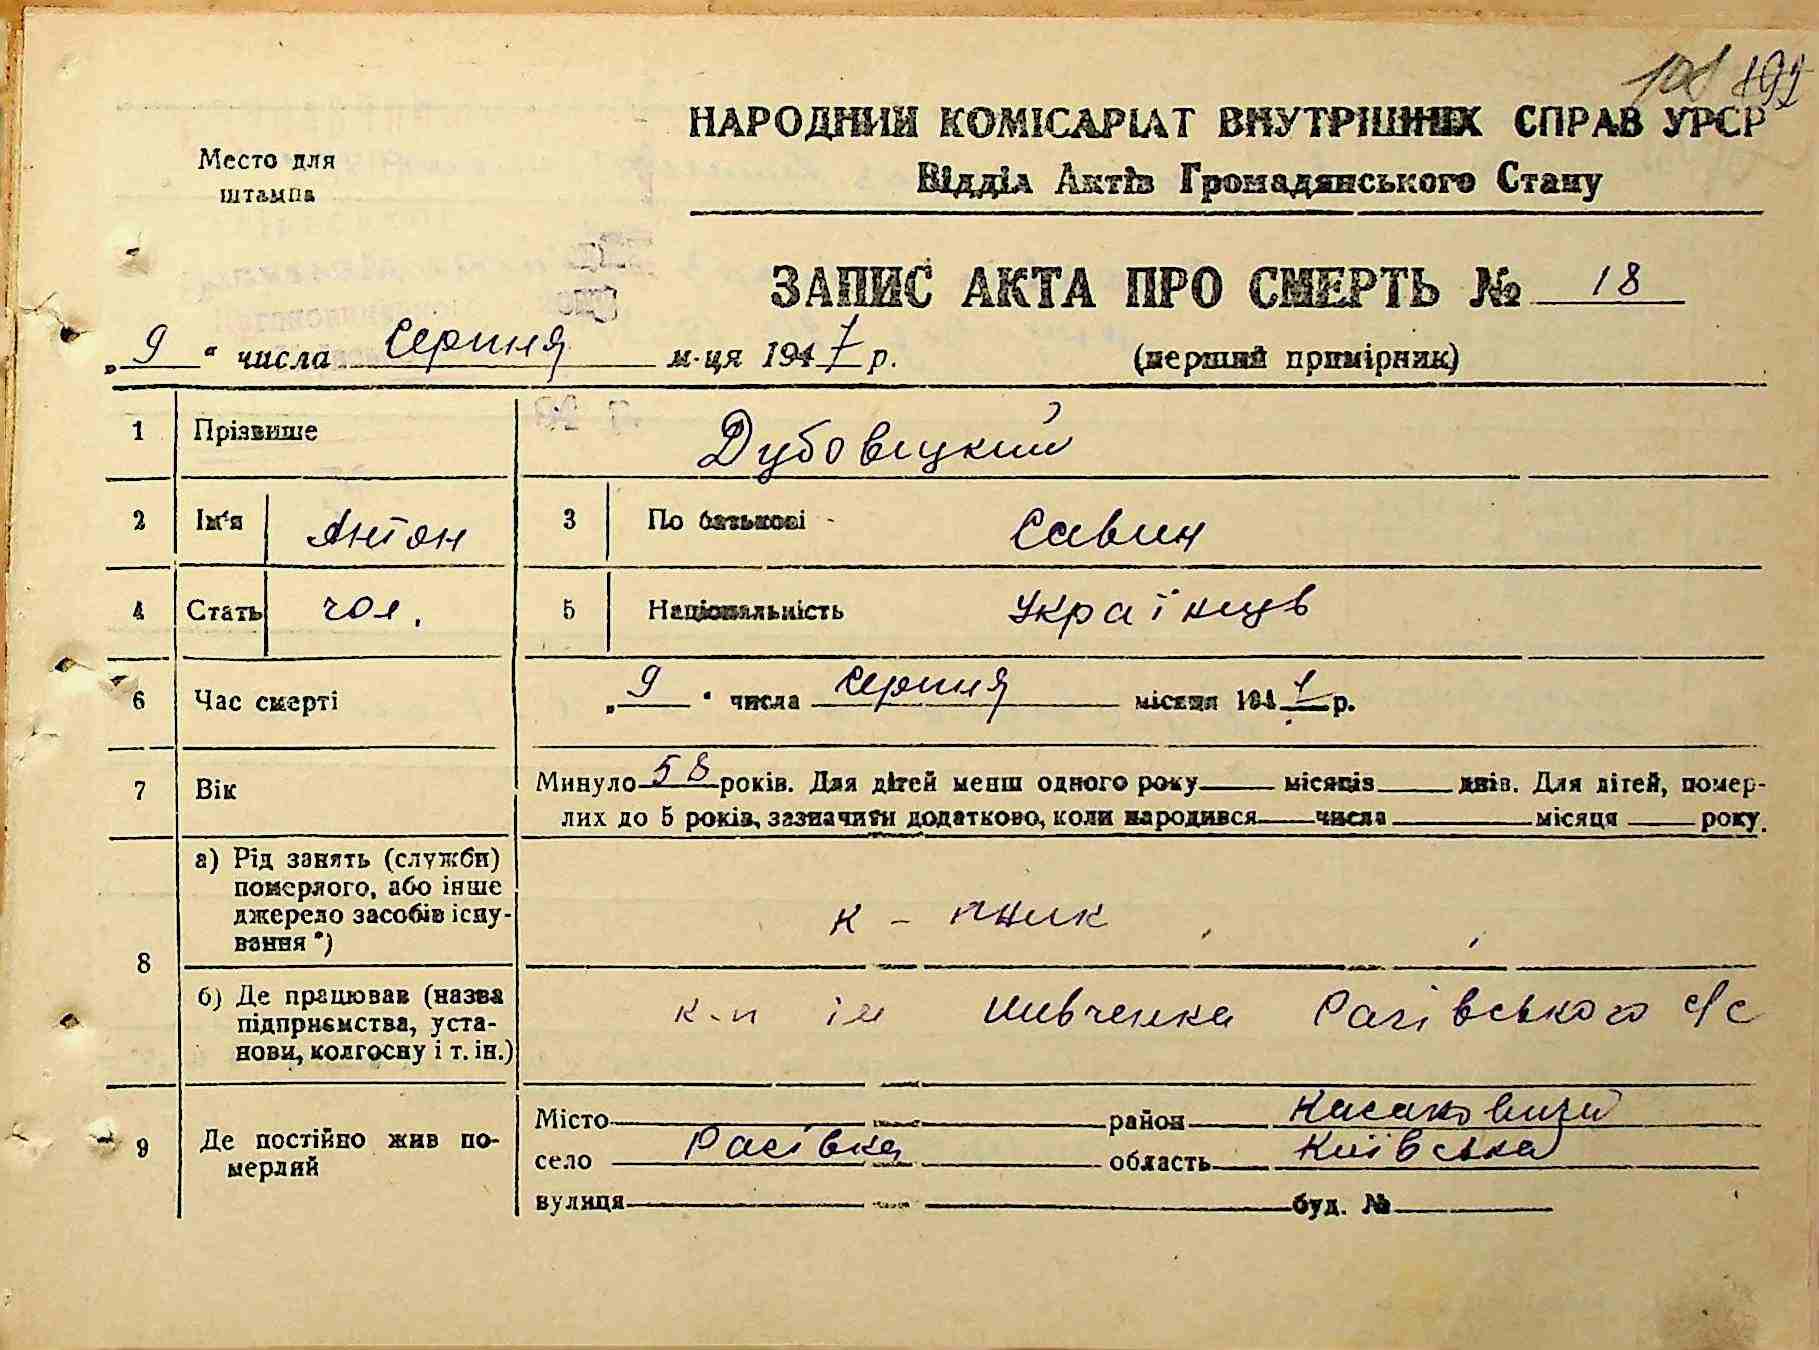 191
НАРОДНИЙ КОМІСАРІАТ ВНУТРІШНІХ СПРАВ УРСР
Відділ Актів Громадянського Стану
Место для
штампа
ЗАПИС АКТА ПРО СМЕРТЬ № 18
„ 9 “ числа Серпня м-ця 1947 р. (перший примірник)
1 Прізвище Дубовицкий
2 Ім'я Антон 3 По батькові Савин
4 Стать чол. 5 Національність Українцв
6 Час смерті „ 9 “ числа серпня місяця 1947 р.
7 Вік Минуло 58 років. Для дітей менш одного року місяців днів. Для дітей, помер-
лих до 5 років, зазначити додатково, коли народився числа місяця року.
8 а) Рід занять (служби)
померлого, або інше
джерело засобів існу-
вання *)
к - пник
б) Де працював (назва
підприємства, уста-
нови, колгоспу і т. ін.)
к-п ім Шевченка Расівського с/с
9 Де постійно жив по-
мерлий
Місто район
село Расівка область Київська
вулиця буд. №